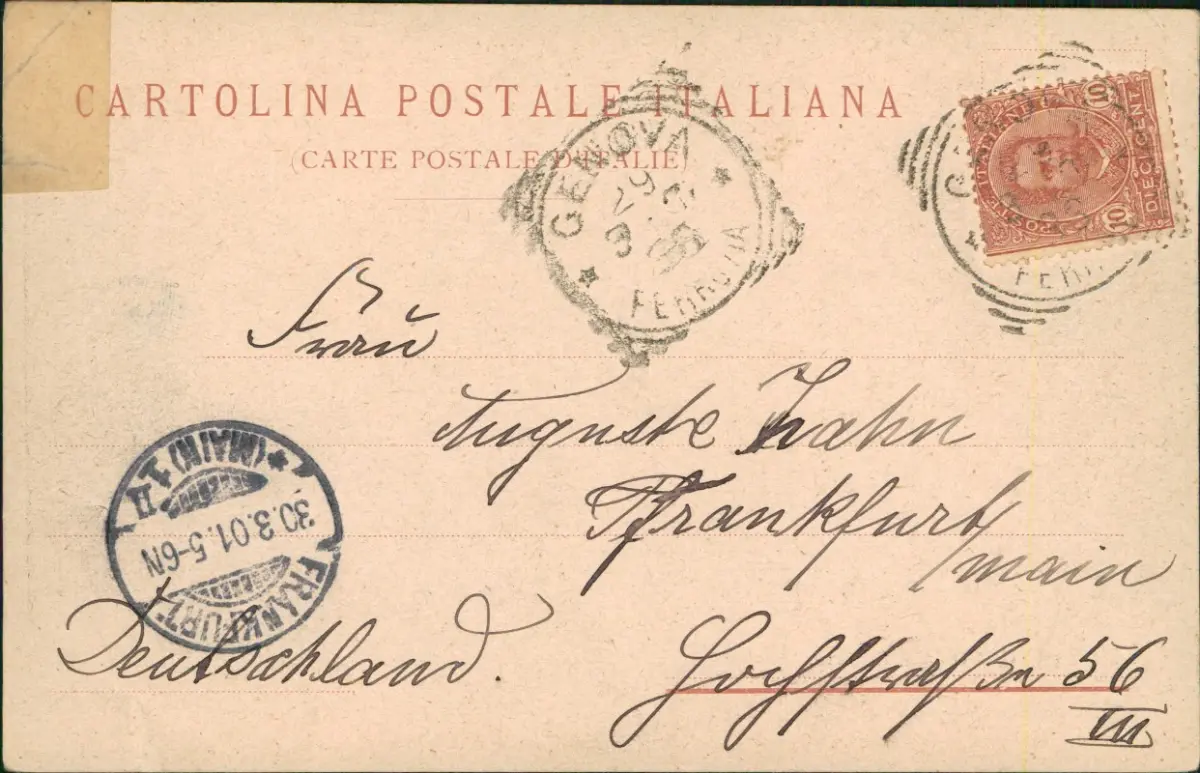 CARTOLINA POSTALE ITALIANA
(CARTE POSTALE D'ITALIE)
GENOVA
29
3
FERROVIA
POSTE ITALIANE
10
10
DIECI
FERR
Frau
Auguste Hahn
Frankfurt/
main
Hochstraße 56
III
Deutschland.
FRANKFURT
30.3.01.5-6N
* (MAIN) 1 II